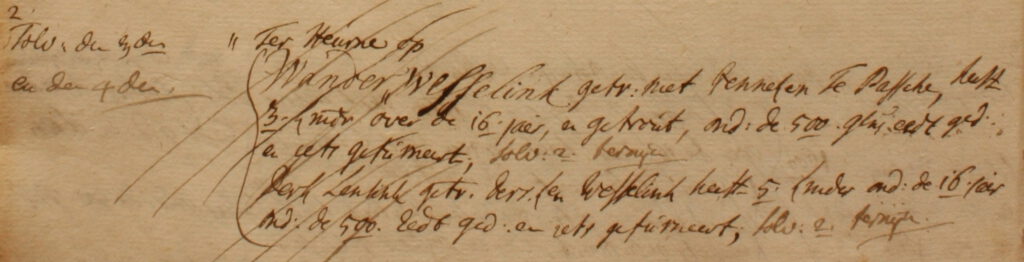 2.
Solv: den 3 den
en den 4 den.
" Ter Heurne op
Wander Wesselink getr: met Jenneken Te Passche, heeft
3. kinder over de 16 jaer, en getrout, ond: de 500 gls: eedt ged:,
en iets gefurneert, solv: 2.
Derk Lenkink getr. Ders:ken Wesselink heeft 5 kinder ond: de 16 jaer
ond: de 500. Eedt ged: en iets gefurneert, solv: 2.